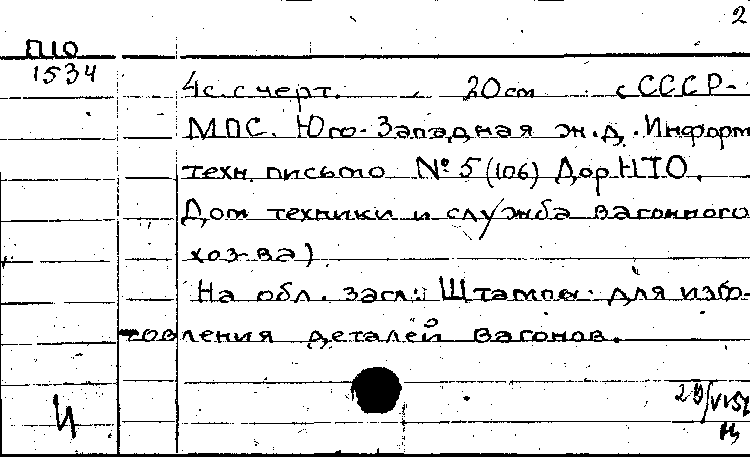 2
П10
1534
4с. с черт. 20 см (СССР-
МПС. Юго-Западная ж.д. Информ
техн. письмо № 5 (106) Дор НТО.
Дом техники и служба вагонного
хоз-ва)
На обл. загл: Штампы для изго-
товления деталей вагонов.
И